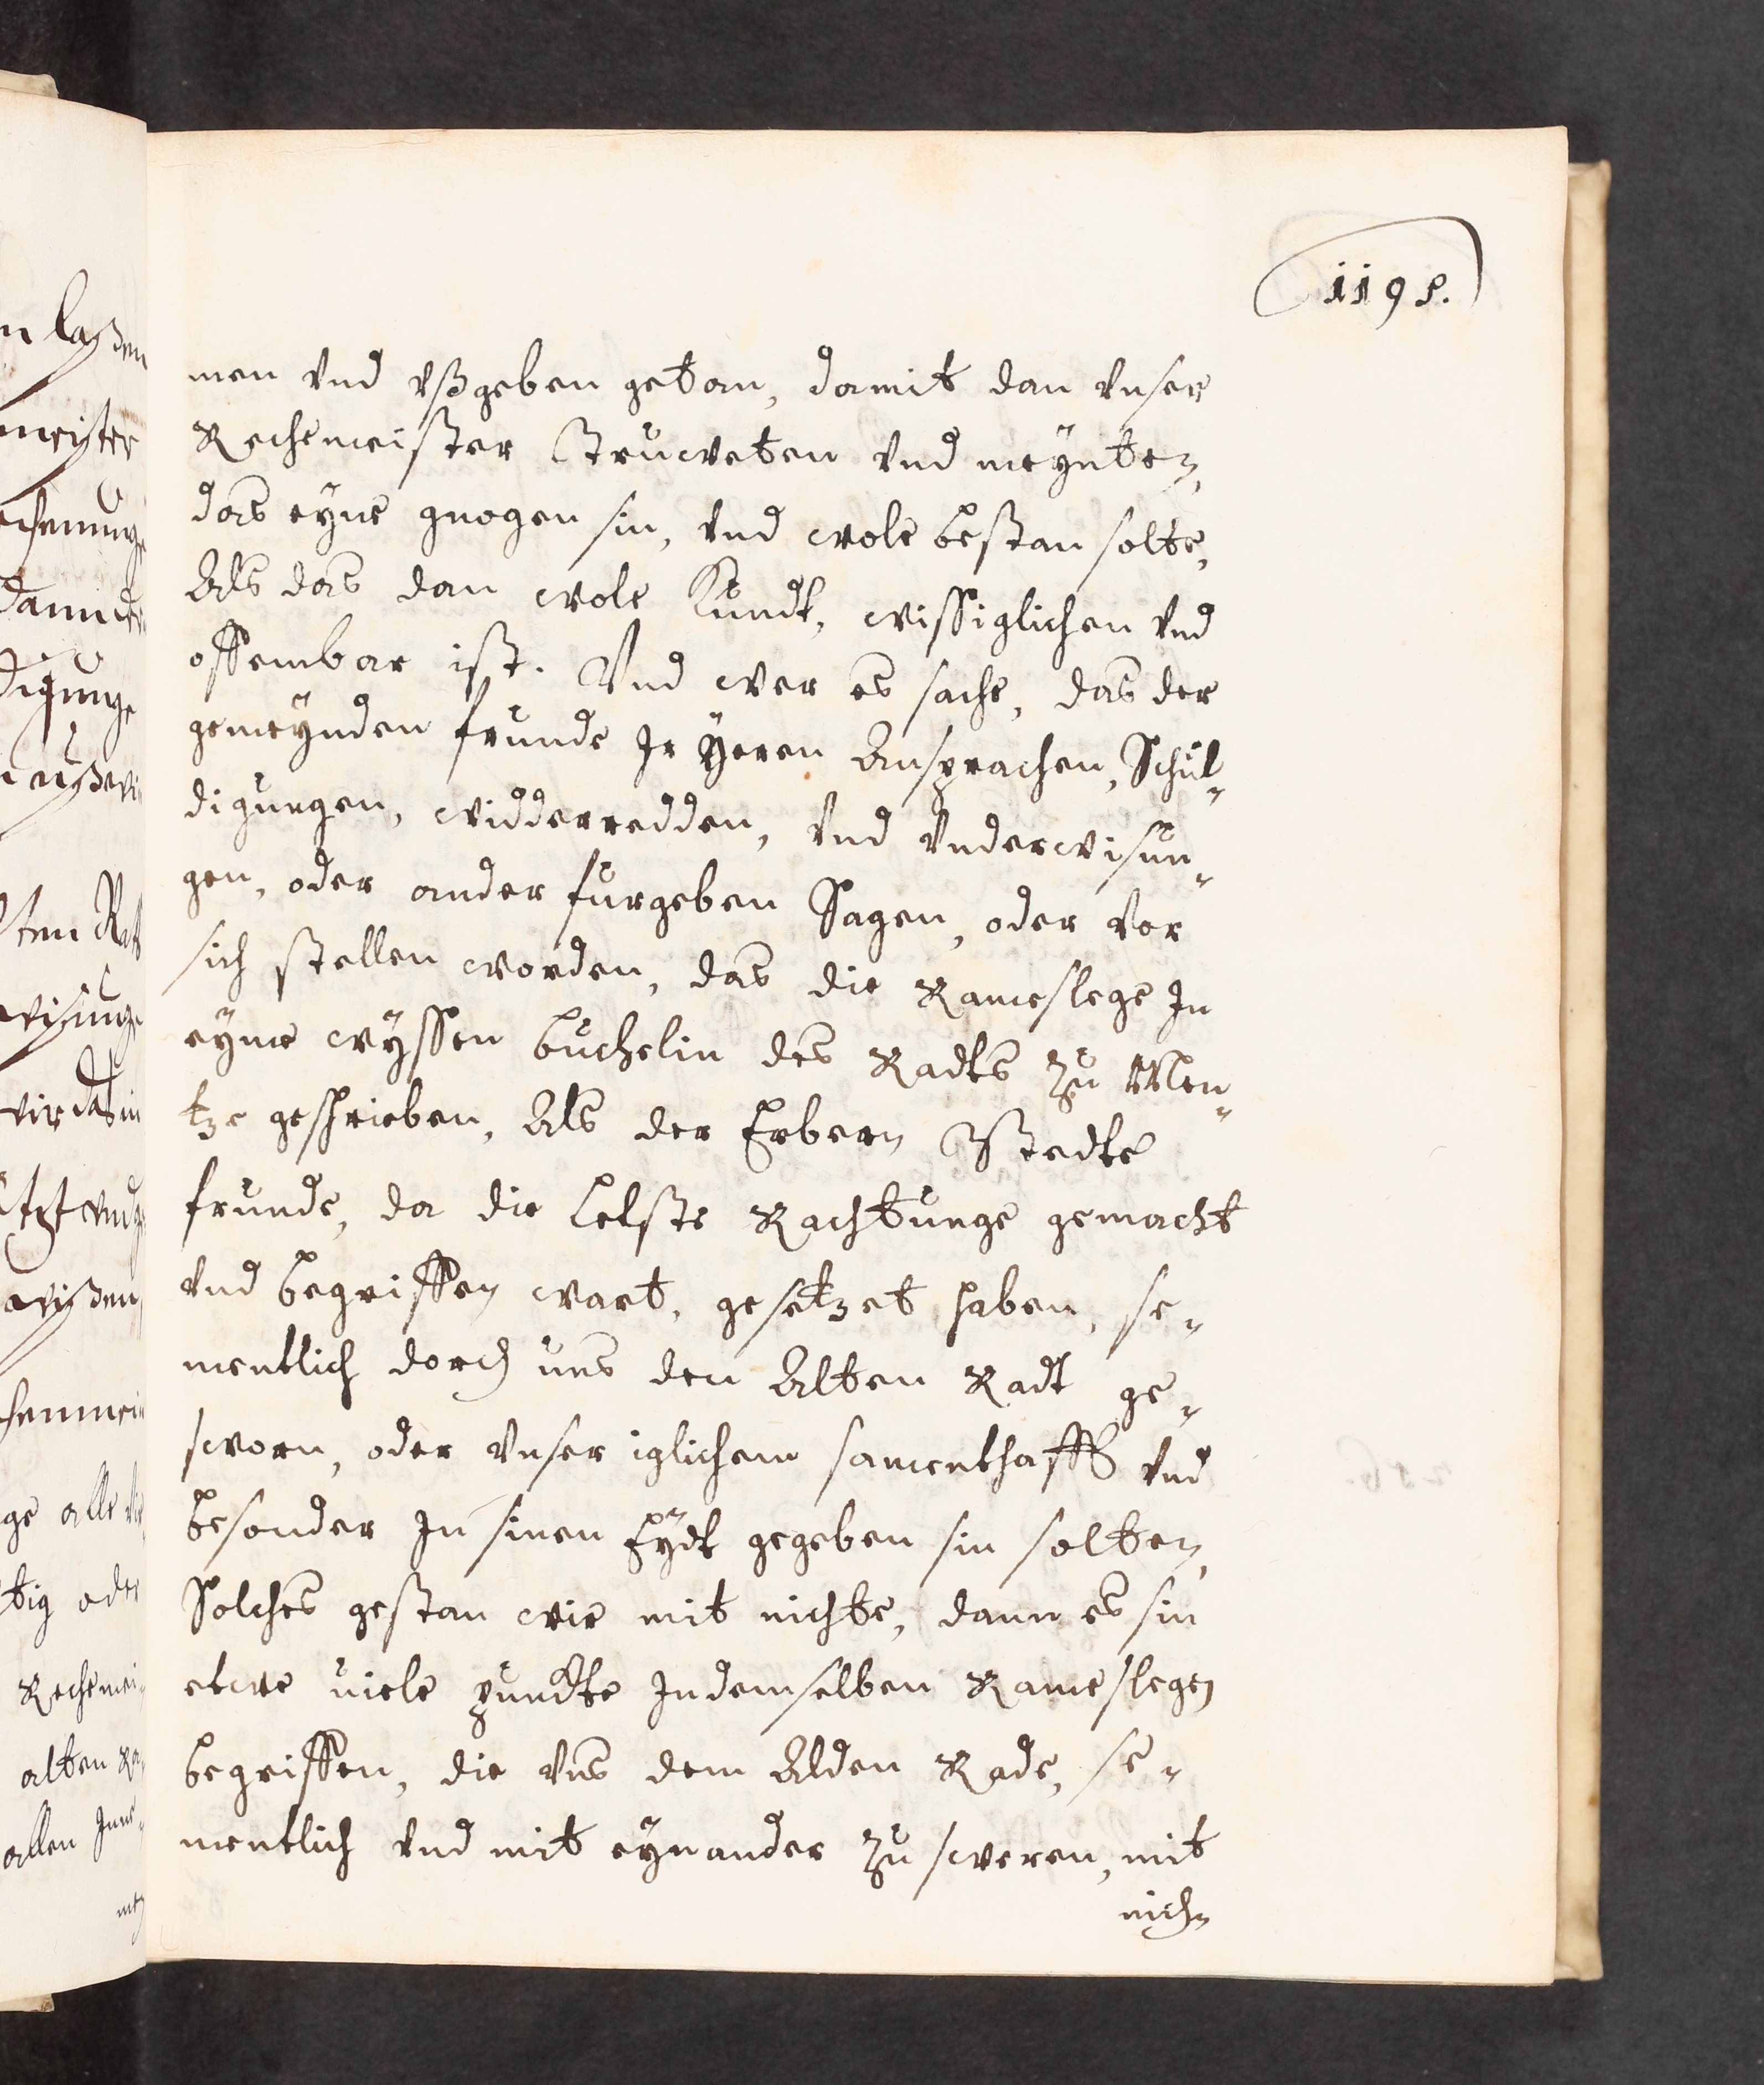 1195.
men vnd vßgeben getan, damit dan vnser
Rechemeister Struweten vnd meynten,
das eyne gnogen sin, vnd wole bestan solte,
Als das dan wole Kundt, wissiglichen vnd
offembar ist. Vnd wer es sache, das der
gemeynden frunde Jr Heren Ansprachen, Schul-
digungen, widderredden, vnd vnderwisun-
gen, oder ander furgeben Sagen, oder vor
sich stellen worden, das die Rameslege Jn
eyme wyssen buchelin des Radts zu Men-
tze geschrieben, Als der Erbern Stedte
frunde, da die Letste Rachtunge gemacht
vnd begriffen wart, gesetzet haben, se-
mentlich dorch uns den Alten Radt ge-
sworn, oder vnser iglichem samenthafft vnd
besonder Jn sinen Eydt gegeben sin solten,
Solches gestan wir mit nichte, dann es sin
etwe viele pundte Jn demselben Rameslegen
begriffen, die vns dem Alden Rade, se-
mentlich vnd mit eynander zu sweren, mit
nich-